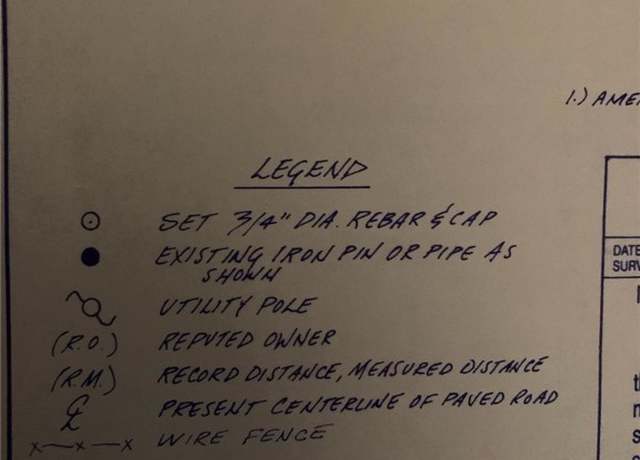 1.) AME
LEGEND
SET 3/4" DIA. REBAR & CAP
EXISTING IRON PIN OR PIPE AS
SHOWN
DATE
SURV
UTILITY POLE
(R.O.) REPUTED OWNER
(R.M.) RECORD DISTANCE, MEASURED DISTANCE
℄ PRESENT CENTERLINE OF PAVED ROAD
x—x—x WIRE FENCE